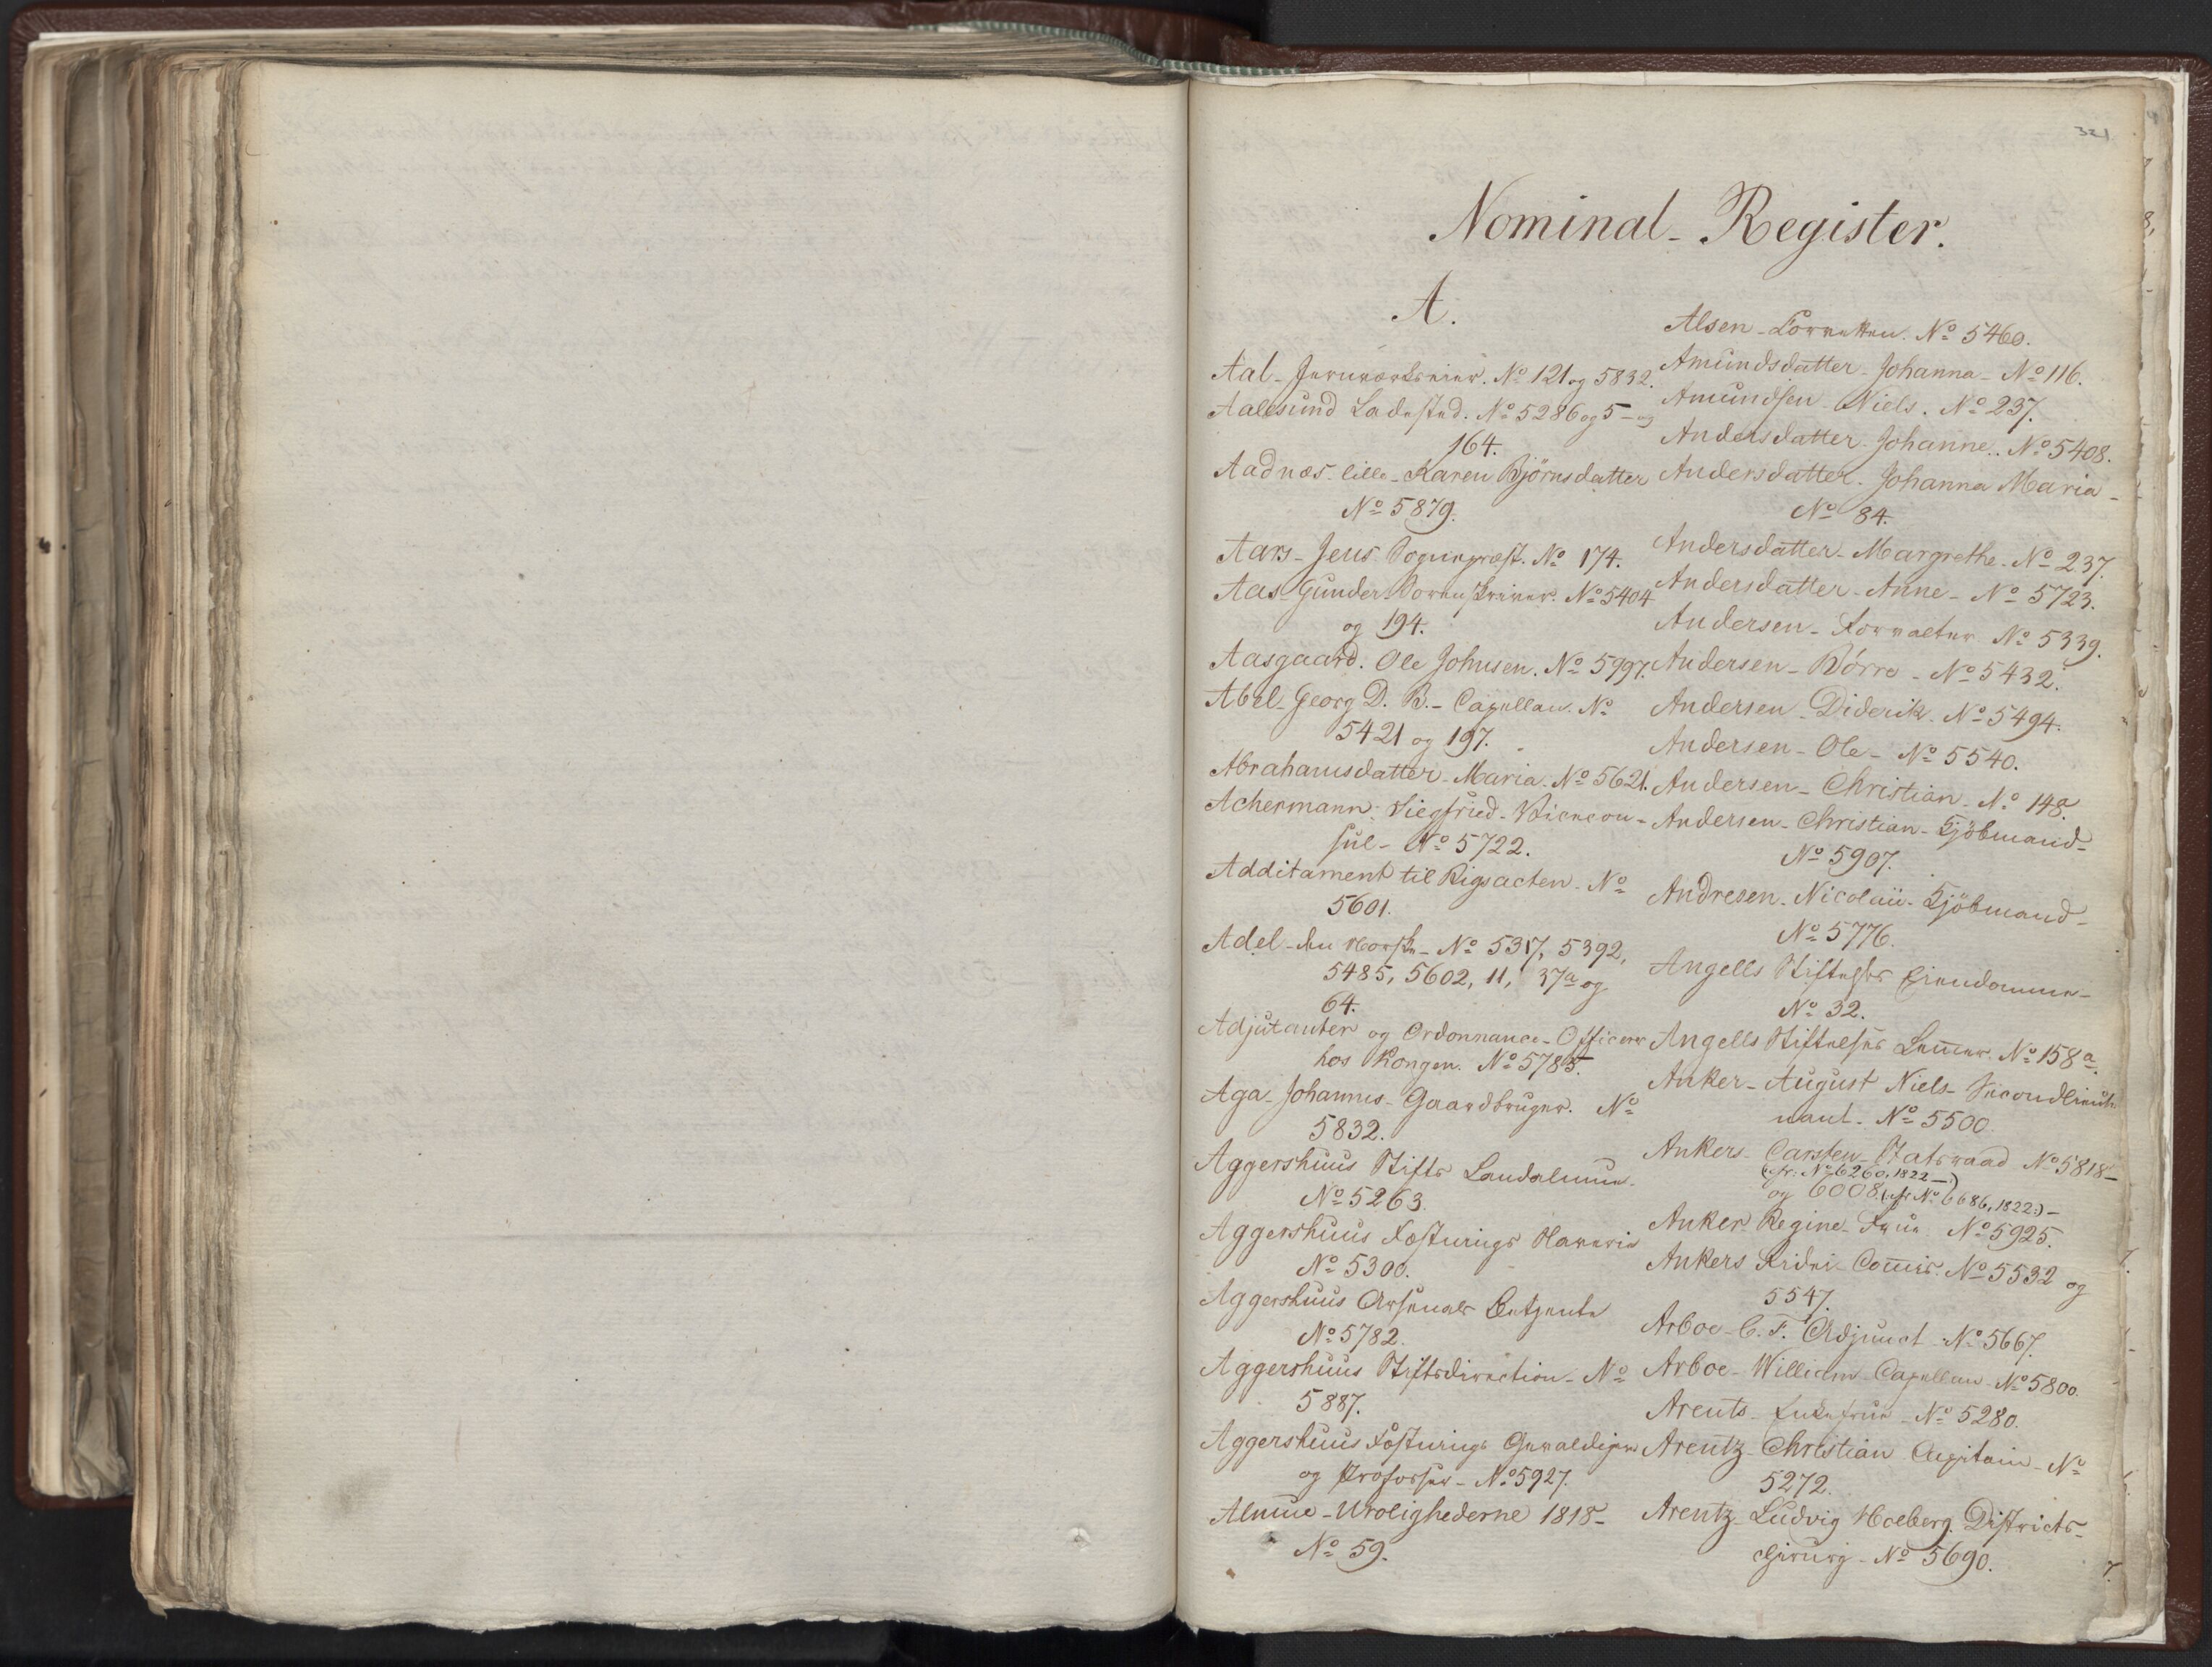 321
Nominal-Register.
A.
Aal-Jernværkseier. No 121 og 5832.
Aalesund Ladested. No 5286 og 5- og
164.
Aadnæs-lille-Karen Björnsdatter
No 5879.
Aars-Jens-Sognepræst. No 174.
Aas-Gunder-Sorenskriver. No 5404
og 194.
Aasgaard. Ole Johnsen. No 5997.
Abel-Georg D. B.-Capellan. No
5421 og 197.
Abrahamsdatter-Maria. No 5621.
Achermann-Siegfried-Vicecon-
sul-No 5722.
Additament til Rigsacten. No
5601.
Adel-den norske-No 5317, 5392,
5485, 5602, 11, 37a og
64.
Adjutanter og Ordonnance-Officerer
hos Kongen. No 5785.
Aga-Johannes-Gaardbruger. No
5832.
Aggershuus Stifts Landalmue.
No 5263.
Aggershuus Fæstnings Slaverie
No 5300.
Aggershuus Arsenals Betjente
No 5782.
Aggershuus Stiftsdirection-No
5887.
Aggershuus Fæstnings Gevaldiger
og Profosser-No 5927.
Almue-Urolighederne 1818-
No 59.
Alsen-Corvetten. No 5460.
Amundsdatter-Johanna-No 116.
Amundsen-Niels. No 237.
Andersdatter-Johanne. No 5408.
Andersdatter. Johanna Maria-
No 84.
Andersdatter-Margrethe-No 237.
Andersdatter-Anne-No 5723.
Andersen-Forvalter No 5339.
Andersen-Börre-No 5432.
Andersen-Diderik. No 5494.
Andersen-Ole-No 5540.
Andersen-Christian-No 148.
Andersen-Christian-Kjöbmand-
No 5907.
Andresen-Nicolaii-Kjöbmand-
No 5776.
Angells Stiftelses Eiendomme-
No 32.
Angells Stiftelses Lemmer. No 158a.
Anker-August Niels-Secondlieute
nant-No 5500.
Ankers-Carsten-Statsraad No 5818-
(cfr. No 6260, 1822-)
og 6008 (cfr No 6686, 1822.)-
Anker Regine-Frue No 5925.
Ankers Fidei-Comis. No 5532 og
5547.
Arboe-C. F. Adjunct-No 5667.
Arboe-William-Capellan-No 5800.
Arents-Enkefrue-No 5280.
Arentz-Christian Capitain-No
5272.
Arentz-Ludvig Holberg. Districts-
chirurg-No 5690.